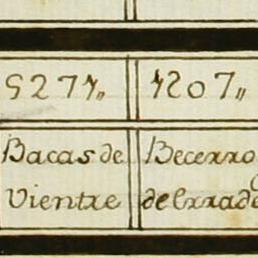 5274„ 4507„
Bacas de
Vientre
Becerro
de Errade